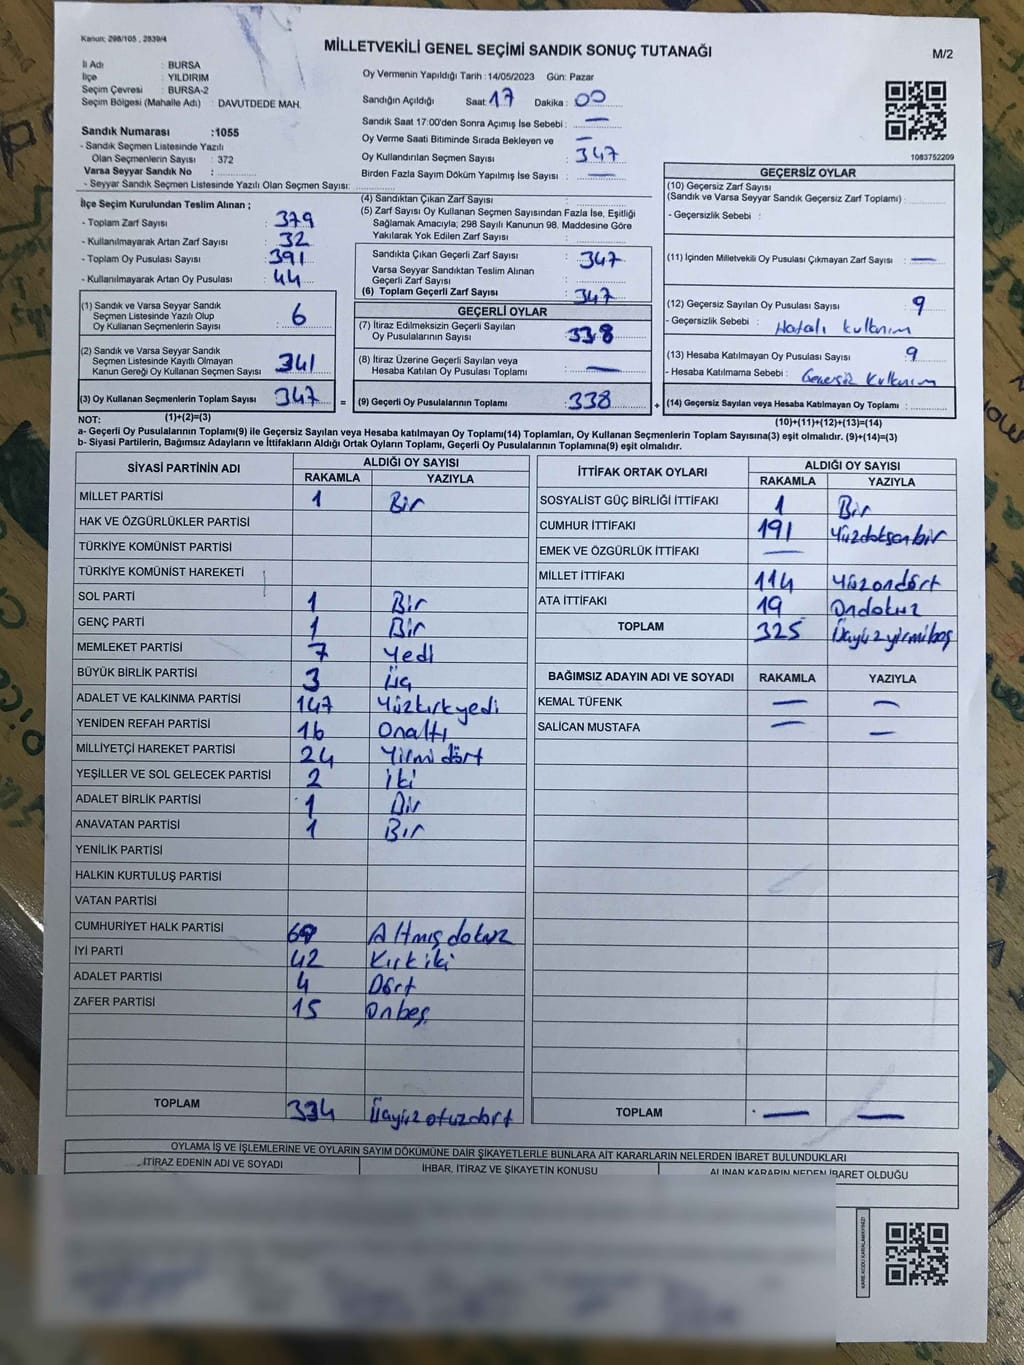 Kanun: 298/105 , 2839/4
MİLLETVEKİLİ GENEL SEÇİMİ SANDIK SONUÇ TUTANAĞI
M/2
İl Adı : BURSA
İlçe : YILDIRIM
Seçim Çevresi : BURSA-2
Seçim Bölgesi (Mahalle Adı) : DAVUTDEDE MAH.
Sandık Numarası :1055
- Sandık Seçmen Listesinde Yazılı
Olan Seçmenlerin Sayısı : 372
Varsa Seyyar Sandık No :
- Seyyar Sandık Seçmen Listesinde Yazılı Olan Seçmen Sayısı:
Oy Vermenin Yapıldığı Tarih :14/05/2023 Gün: Pazar
Sandığın Açıldığı Saat: 17 Dakika : 00
Sandık Saat 17:00'den Sonra Açımış İse Sebebi : —
Oy Verme Saati Bitiminde Sırada Bekleyen ve —
Oy Kullandırılan Seçmen Sayısı : 347
Birden Fazla Sayım Döküm Yapılmış İse Sayısı : —
1083752209
İlçe Seçim Kurulundan Teslim Alınan ;
- Toplam Zarf Sayısı : 379
- Kullanılmayarak Artan Zarf Sayısı : 32
- Toplam Oy Pusulası Sayısı : 391
- Kullanılmayarak Artan Oy Pusulası : 44
(1) Sandık ve Varsa Seyyar Sandık
Seçmen Listesinde Yazılı Olup
Oy Kullanan Seçmenlerin Sayısı : 6
(2) Sandık ve Varsa Seyyar Sandık
Seçmen Listesinde Kayıtlı Olmayan
Kanun Gereği Oy Kullanan Seçmen Sayısı : 341
(3) Oy Kullanan Seçmenlerin Toplam Sayısı : 347
(1)+(2)=(3)
(4) Sandıktan Çıkan Zarf Sayısı :
(5) Zarf Sayısı Oy Kullanan Seçmen Sayısından Fazla İse, Eşitliği
Sağlamak Amacıyla; 298 Sayılı Kanunun 98. Maddesine Göre
Yakılarak Yok Edilen Zarf Sayısı :
Sandıkta Çıkan Geçerli Zarf Sayısı : 347
Varsa Seyyar Sandıktan Teslim Alınan
Geçerli Zarf Sayısı :
(6) Toplam Geçerli Zarf Sayısı : 347
GEÇERLİ OYLAR
(7) İtiraz Edilmeksizin Geçerli Sayılan
Oy Pusulalarının Sayısı : 338
(8) İtiraz Üzerine Geçerli Sayılan veya
Hesaba Katılan Oy Pusulaları Toplamı : —
= (9) Geçerli Oy Pusulalarının Toplamı : 338
GEÇERSİZ OYLAR
(10) Geçersiz Zarf Sayısı
(Sandık ve Varsa Seyyar Sandık Geçersiz Zarf Toplamı) :
- Geçersizlik Sebebi :
(11) İçinden Milletvekili Oy Pusulası Çıkmayan Zarf Sayısı : —
(12) Geçersiz Sayılan Oy Pusulası Sayısı : 9
- Geçersizlik Sebebi : Hatalı kullanım
(13) Hesaba Katılmayan Oy Pusulası Sayısı : 9
- Hesaba Katılmama Sebebi : Geçersiz kullanım
+ (14) Geçersiz Sayılan veya Hesaba Katılmayan Oy Toplamı :
(10)+(11)+(12)+(13)=(14)
NOT:
a- Geçerli Oy Pusulalarının Toplamı(9) ile Geçersiz Sayılan veya Hesaba katılmayan Oy Toplamı(14) Toplamları, Oy Kullanan Seçmenlerin Toplam Sayısına(3) eşit olmalıdır. (9)+(14)=(3)
b- Siyasi Partilerin, Bağımsız Adayların ve İttifakların Aldığı Ortak Oyların Toplamı, Geçerli Oy Pusulalarının Toplamına(9) eşit olmalıdır.
SİYASİ PARTİNİN ADI ALDIĞI OY SAYISI
RAKAMLA YAZIYLA
MİLLET PARTİSİ 1 Bir
HAK VE ÖZGÜRLÜKLER PARTİSİ
TÜRKİYE KOMÜNİST PARTİSİ
TÜRKİYE KOMÜNİST HAREKETİ
SOL PARTİ 1 Bir
GENÇ PARTİ 1 Bir
MEMLEKET PARTİSİ 7 Yedi
BÜYÜK BİRLİK PARTİSİ 3 Üç
ADALET VE KALKINMA PARTİSİ 147 Yüzkırkyedi
YENİDEN REFAH PARTİSİ 16 Onaltı
MİLLİYETÇİ HAREKET PARTİSİ 24 Yirmi dört
YEŞİLLER VE SOL GELECEK PARTİSİ 2 iki
ADALET BİRLİK PARTİSİ 1 Bir
ANAVATAN PARTİSİ 1 Bır
YENİLİK PARTİSİ
HALKIN KURTULUŞ PARTİSİ
VATAN PARTİSİ
CUMHURİYET HALK PARTİSİ 69 Altmış dokuz
İYİ PARTİ 42 Kırk iki
ADALET PARTİSİ 4 Dört
ZAFER PARTİSİ 15 Onbeş
TOPLAM 334 Üçyüz otuzdört
İTTİFAK ORTAK OYLARI ALDIĞI OY SAYISI
RAKAMLA YAZIYLA
SOSYALİST GÜÇ BİRLİĞİ İTTİFAKI 1 Bir
CUMHUR İTTİFAKI 191 Yüzdoksanbir
EMEK VE ÖZGÜRLÜK İTTİFAKI —
MİLLET İTTİFAKI 114 Yüzondört
ATA İTTİFAKI 19 Ondokuz
TOPLAM 325 Üçyüzyirmibeş
BAĞIMSIZ ADAYIN ADI VE SOYADI RAKAMLA YAZIYLA
KEMAL TÜFENK — —
SALİCAN MUSTAFA — —
TOPLAM — —
OYLAMA İŞ VE İŞLEMLERİNE VE OYLARIN SAYIM DÖKÜMÜNE DAİR ŞİKAYETLERLE BUNLARA AİT KARARLARIN NELERDEN İBARET BULUNDUKLARI
İTİRAZ EDENİN ADI VE SOYADI İHBAR, İTİRAZ VE ŞİKAYETİN KONUSU ALINAN KARARIN NEDEN İBARET OLDUĞU